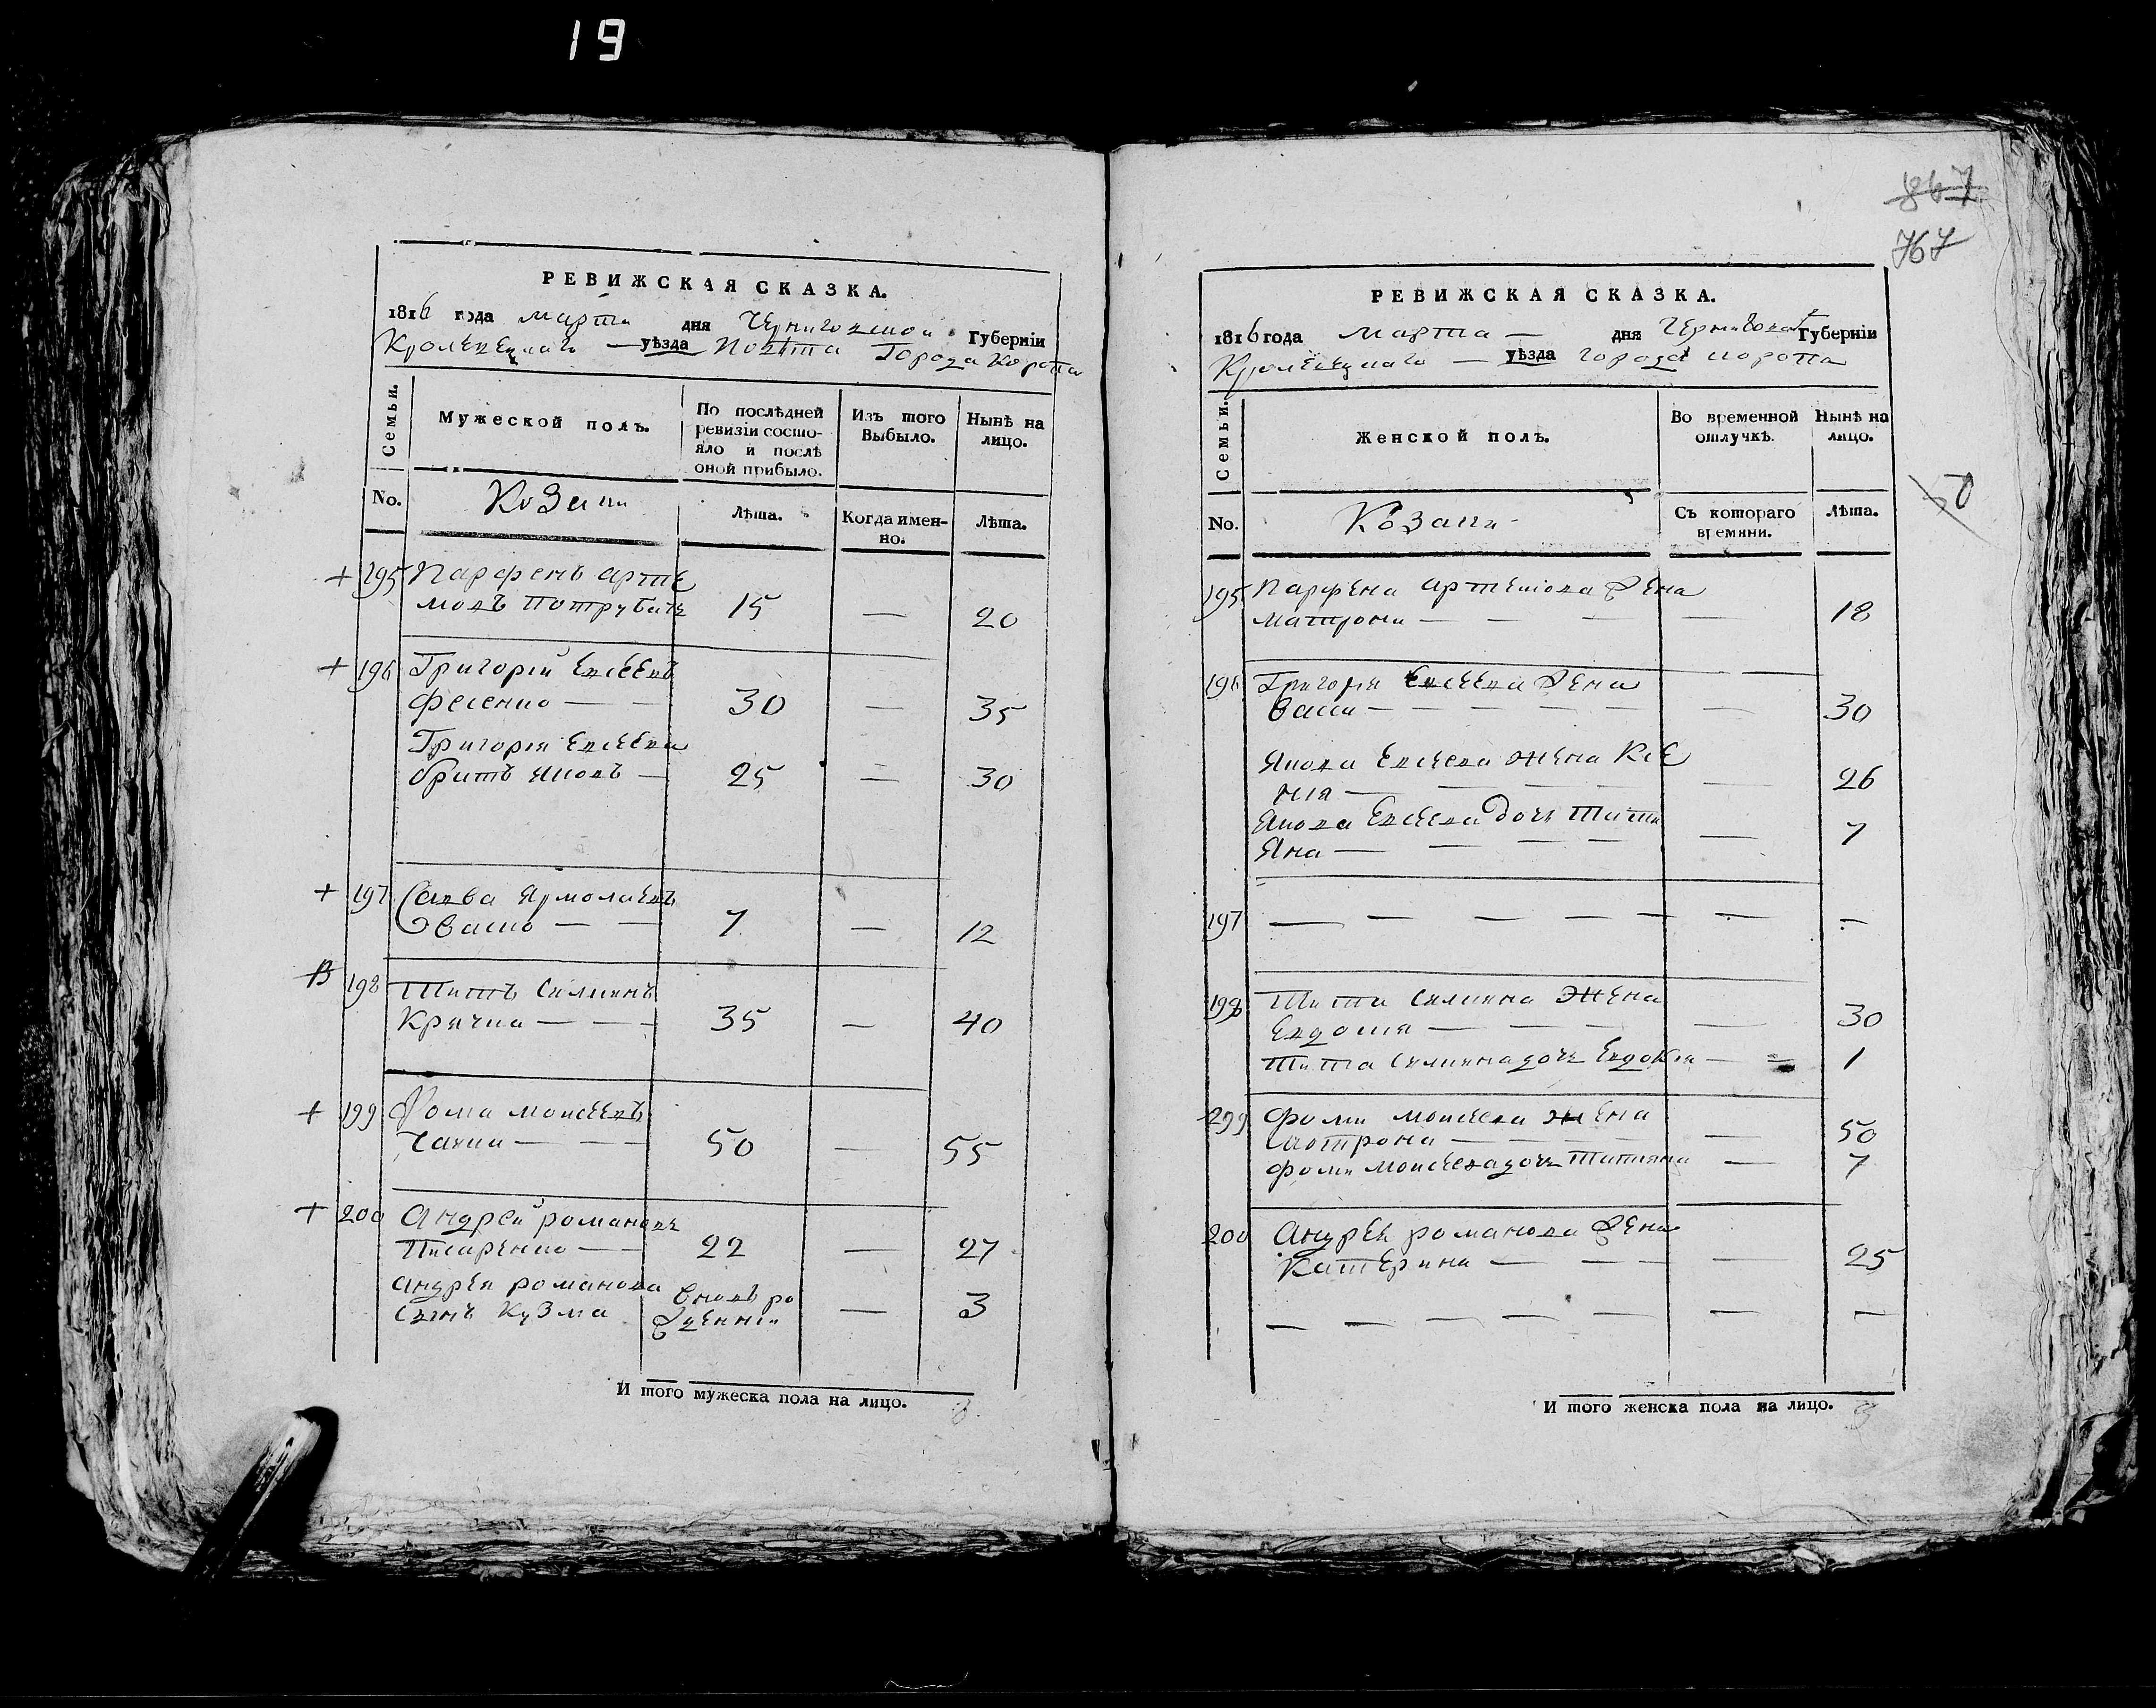 19
РЕВИЖСКАЯ СКАЗКА.
1816 года марта дня Черниговской Губерніи
Кролевецкаго — уѣзда Повѣта Города Коропа
Семьи.
Мужеской полъ.
По послѣдней ревизіи состояло и послѣ оной прибыло.
Изъ того Выбыло.
Нынѣ на лицо.
No.
Козаки
Лѣта.
Когда именно.
Лѣта.
+ 195 Парфенъ Арте
мовъ 15 — 20
+ 196 Григорій Евсеевъ
Фесенко — — 30 — 35
Григорія Евсеева
братъ Яковъ — 25 — 30
+ 197 Савва Ярмолаевъ
— — 7 — 12
В 198 Титъ
— — 35 — 40
+ 199 Фома Моисеевъ
— — 50 — 55
+ 200 Андрей Романовъ
Писаренко — — 22 — 27
Андрея Романова
сынъ Кузма вновь ро
жденній — 3
И того мужеска пола на лицо. 8
867
767
РЕВИЖСКАЯ СКАЗКА.
1816 года марта — дня Черниговской Губерніи
Кролевецкаго — уѣзда города Коропа
Семьи.
Женской полъ.
Во временной отлучкѣ.
Нынѣ на лицо.
50
No.
Козаки
Съ котораго времяни.
Лѣта.
195 Парфена Артемова жена
Матрона — — — — 18
196 Григорія Евсеева жена
— — — — — — 30
Якова Евсеева жена Ксе
нія — — — — — 26
Якова Евсеева дочь Тати
яна — — — — — 7
197 — — — — — — -
198 Тита жена
Евдокия — — — — 30
Тита дочь Евдокія — — 1
199 Фоми Моисеева жена
— — — — 50
Фоми Моисеева дочь Татияна — 7
200 Андрея Романова жена
Катерина — — — — 25
— — — — — — —
И того женска пола на лицо. 8